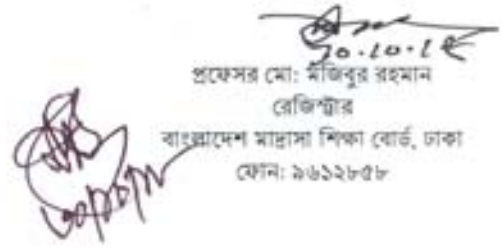 প্রফেসর মো: মজিবুর রহমান
রেজিস্ট্রার
বাংলাদেশ মাদ্রাসা শিক্ষা বোর্ড, ঢাকা
ফোন: ৯৬১২৮৫৮